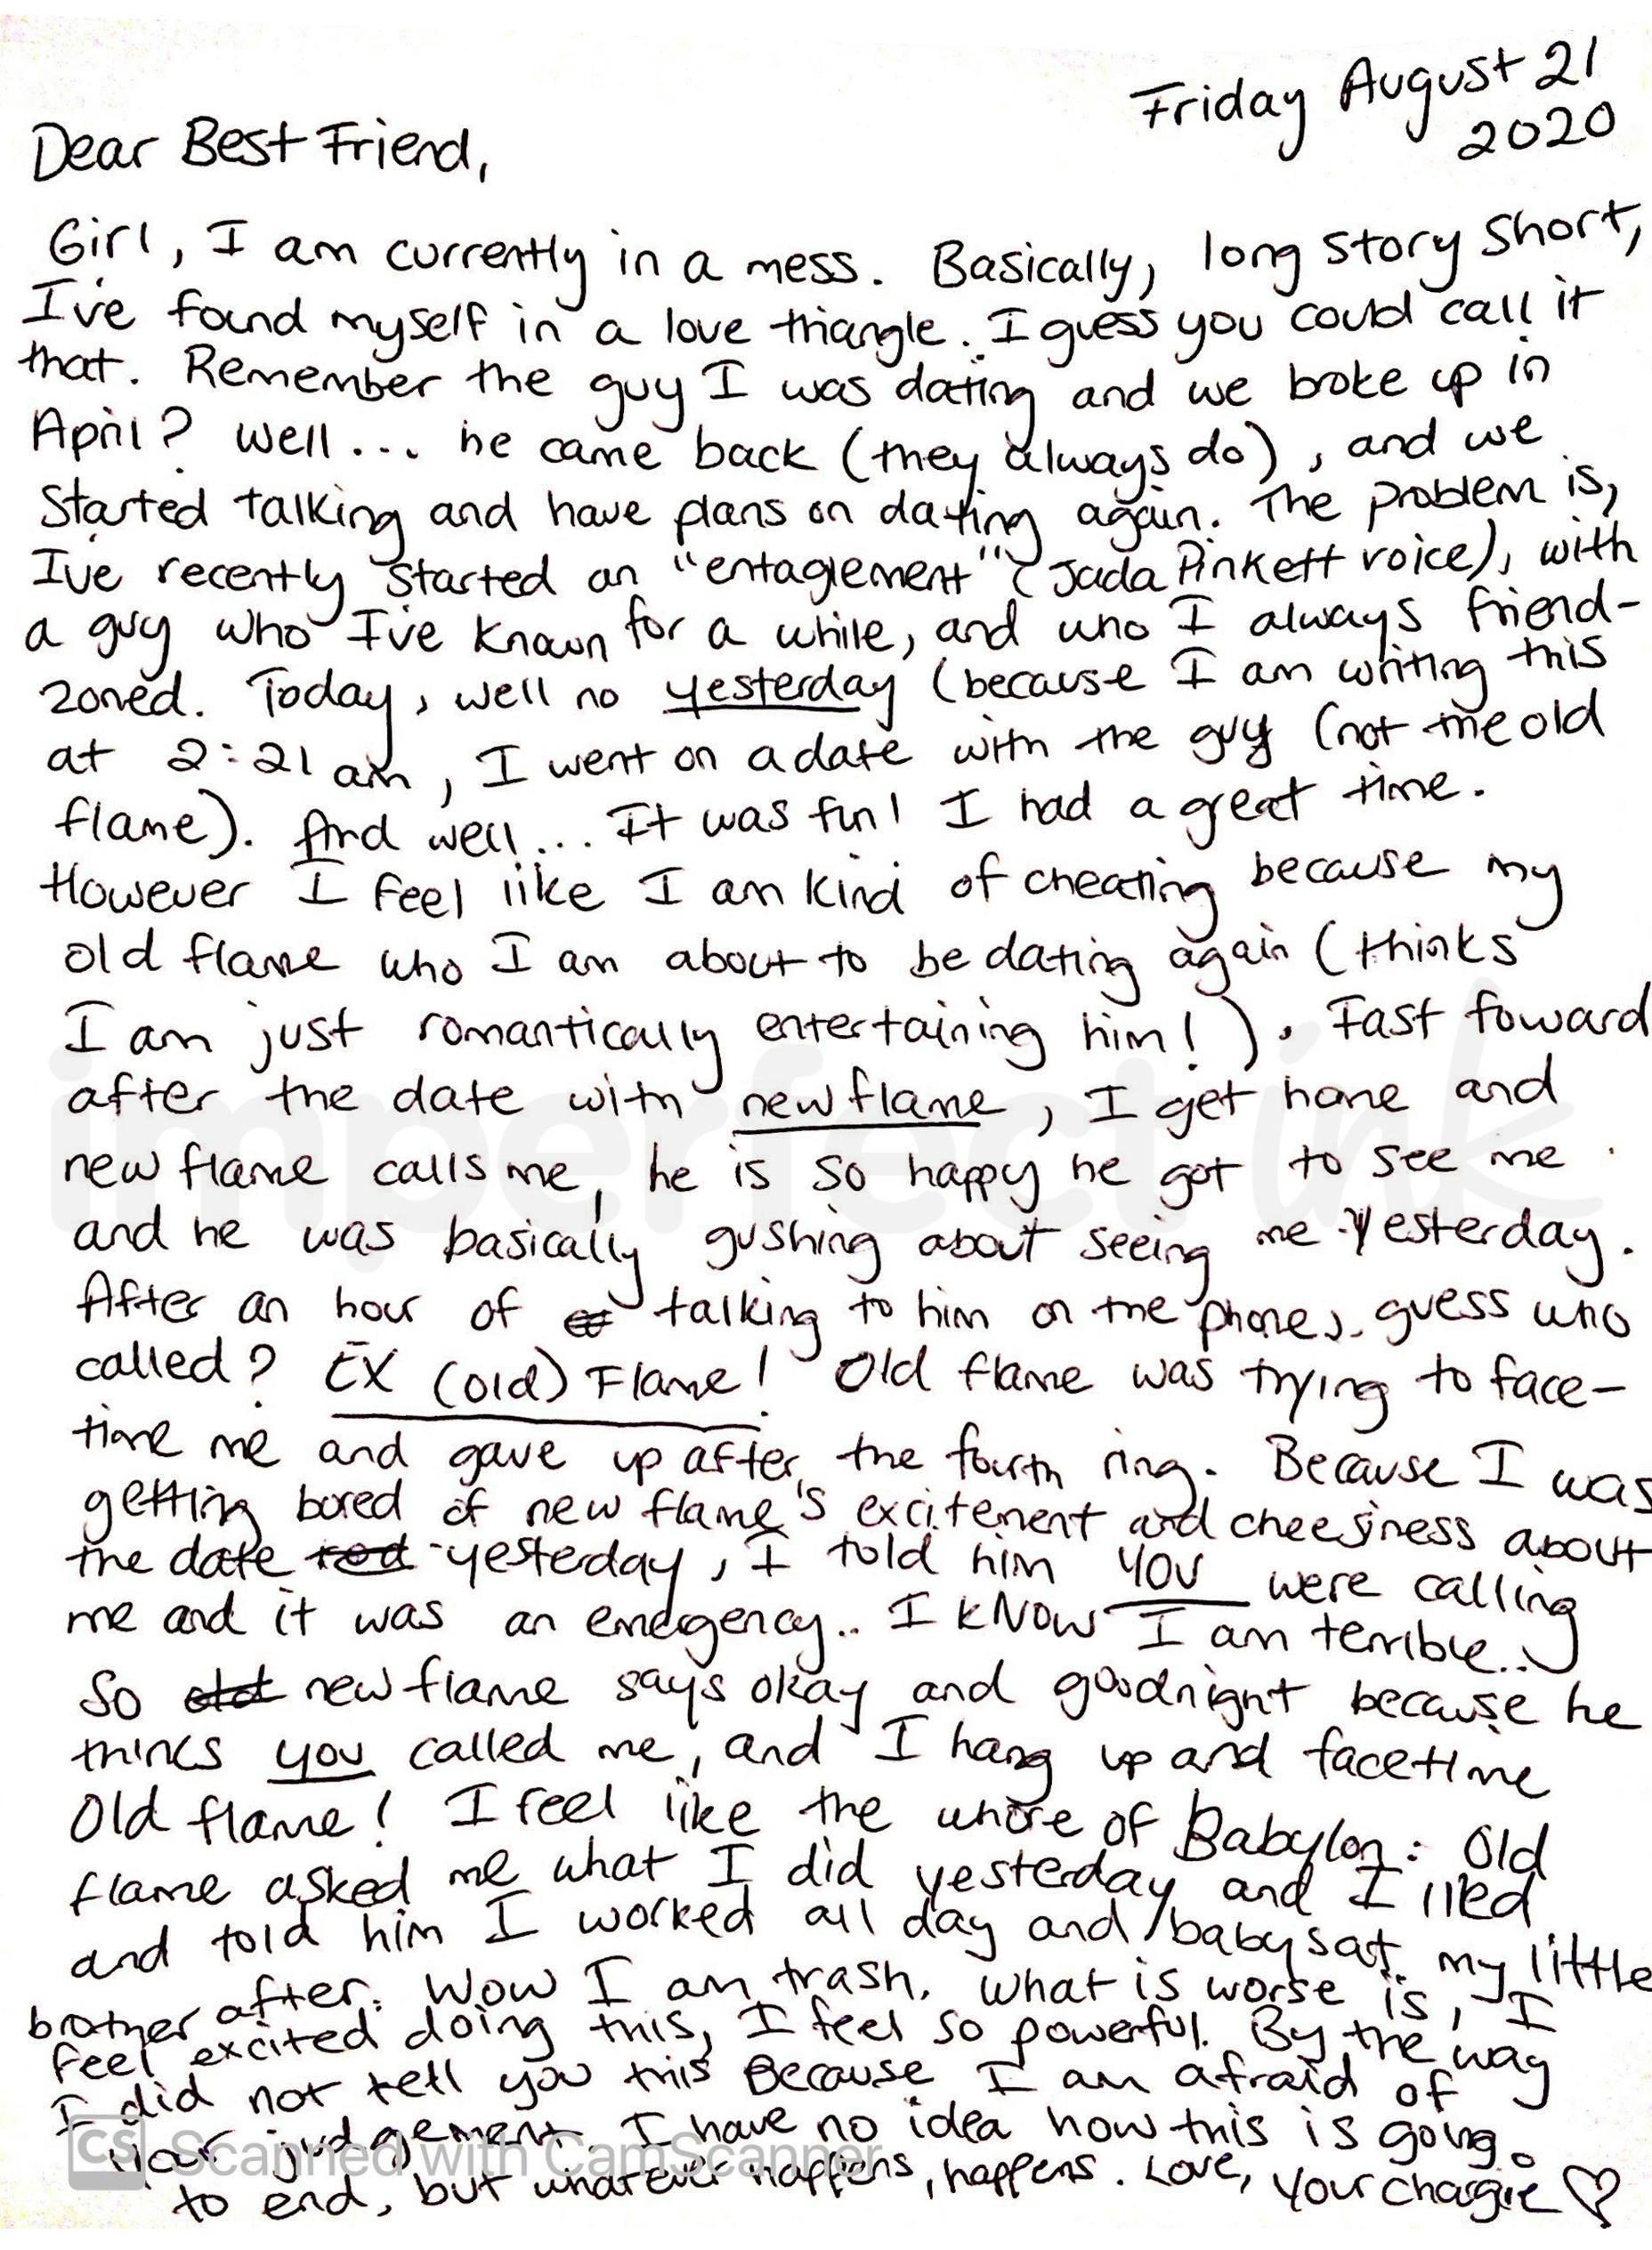 Friday August 21
2020
Dear Best Friend,
Girl, I am currently in a mess. Basically, long story short,
I've found myself in a love triangle. I guess you could call it
that. Remember the guy I was dating and we broke up in
April? Well... he came back (they always do), and we
started talking and have plans on dating again. The problem is,
I've recently started an "entaglement" (Jada Pinkett voice), with
a guy who I've known for a while, and who I always friend-
zoned. Today, well no yesterday (because I am writing this
at 2:21 am, I went on a date with the guy (not the old
flame). And well... It was fun! I had a great time.
However I feel like I am kind of cheating because my
old flame who I am about to be dating again (thinks
I am just romantically entertaining him!). Fast foward
after the date with new flame, I get home and
new flame calls me, he is so happy he got to see me
and he was basically gushing about seeing me yesterday.
After an hour of talking to him on the phone, guess who
called? EX (old) Flame! Old flame was trying to face-
time me and gave up after the fourth ring. Because I was
getting bored of new flame's excitement and cheesiness about
the date yesterday, I told him YOU were calling
me and it was an emergency.. I KNOW I am terrible..
So old new flame says okay and goodnight because he
thinks you called me, and I hang up and facetime
Old flame! I feel like the whore of Babylon: Old
flame asked me what I did yesterday and I lied
and told him I worked all day and babysat my little
brother after. Wow I am trash. What is worse is, I
feel excited doing this, I feel so powerful. By the way
I did not tell you this Because I am afraid of
your judgement. I have no idea how this is going
to end, but whatever happens, happens. Love, your
imperfect ink
CS Scanned with CamScanner